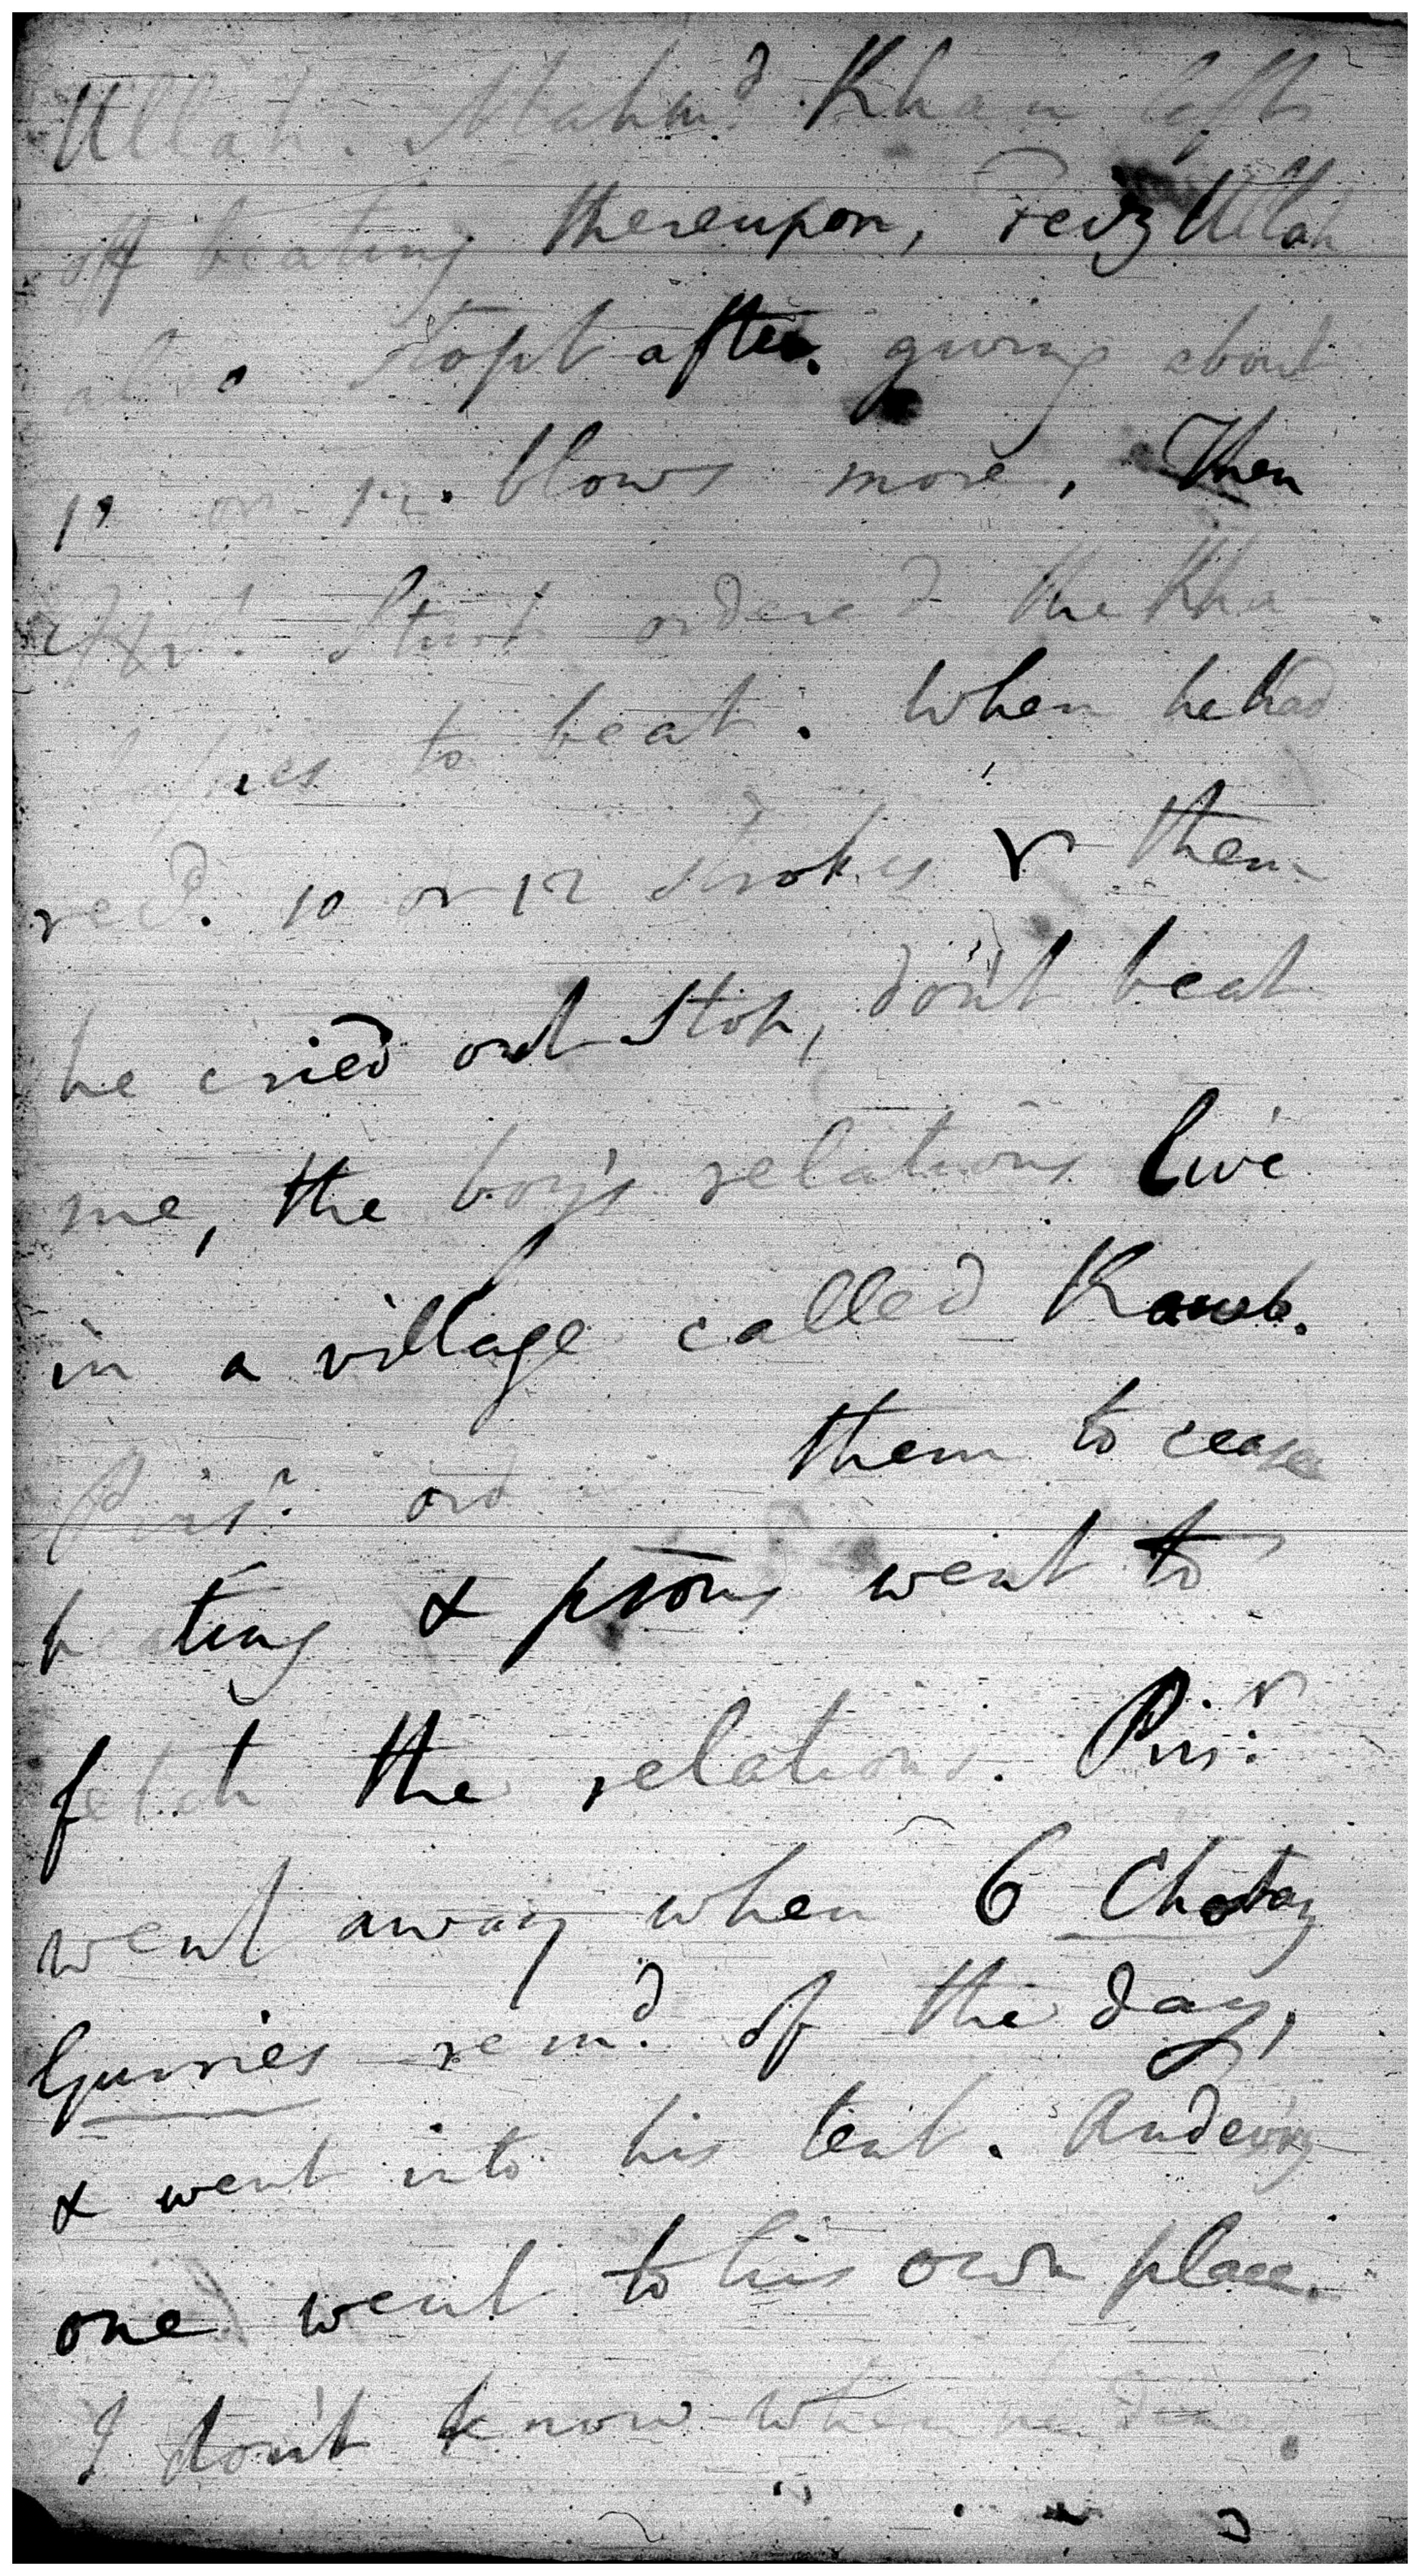 Ullah. Mahm.d Khan lefts
off beating thereupon, Feiz Ullah
also stopt after. giving about
10 or 12. blows more, Then
ordered the Kha-
lasies to beat. When he had
rec.d 10 or 12 strokes r them
he cried out Stop, don't beat
me, the boy's relations live
in a village called
Pris.r ord them to cease
beating & peons went to
fetch the relations. Pris.r
went away when 6 Chotay
Gurries rem.d of the day,
& went into his tent.
one went to his own place.
I don't know when he